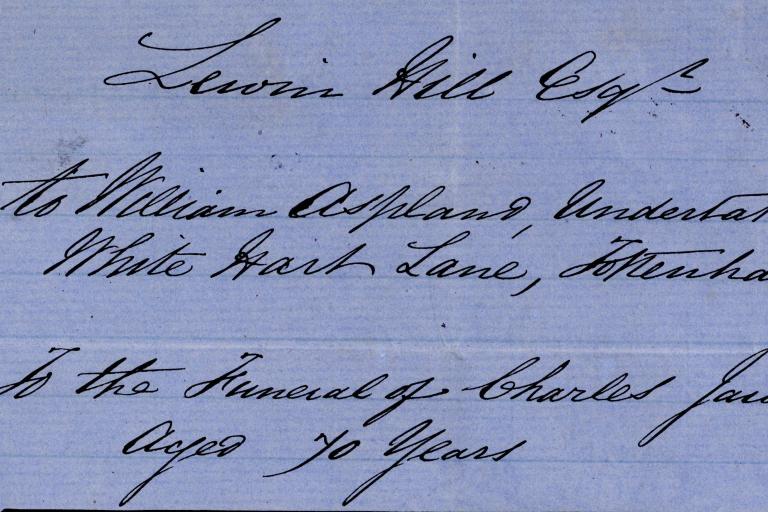 Lewin Hill Esqr
to William Aspland, Undertak
White Hart Lane, Tottenha
To the Funeral of Charles
Aged 70 Years